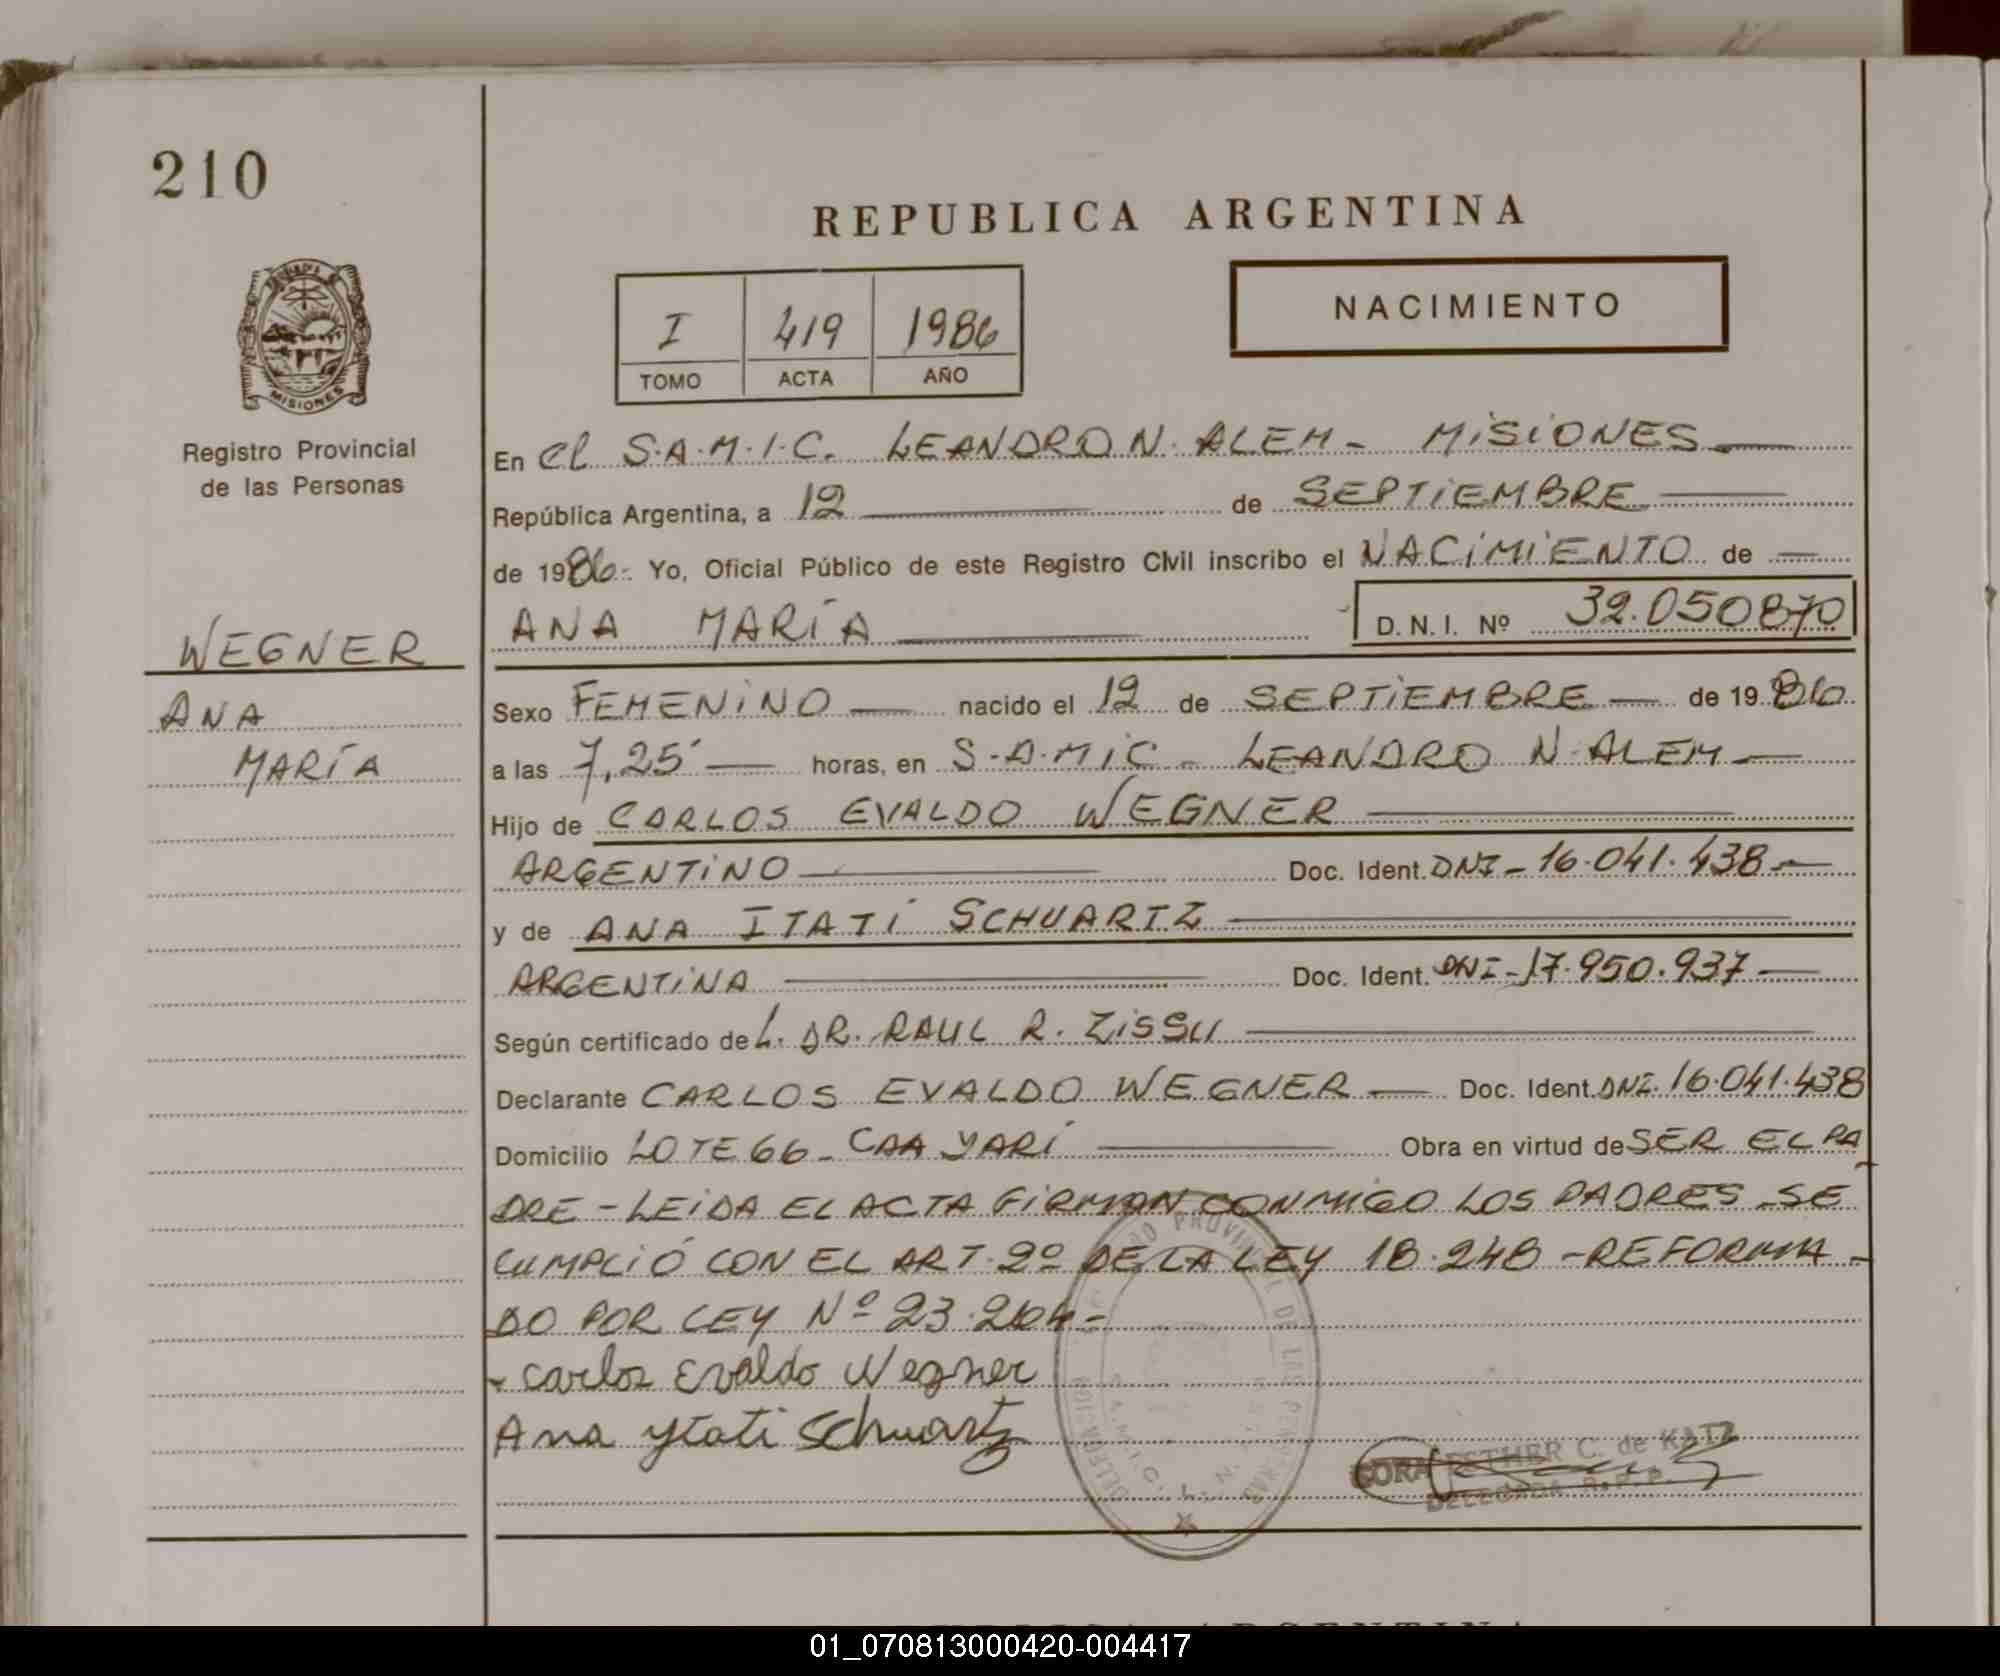 210
REPUBLICA ARGENTINA
MISIONES
Registro Provincial
de las Personas
I 419 1986
TOMO ACTA AÑO
NACIMIENTO
En el S.A.M.I.C. LEANDRO N. ALEM - MISIONES
República Argentina, a 12 de SEPTIEMBRE
de 1986.- Yo, Oficial Público de este Registro Civil inscribo el NACIMIENTO de
ANA MARÍA D.N.I. Nº 32.050870
WEGNER
ANA
MARÍA
Sexo FEMENINO nacido el 12 de SEPTIEMBRE de 1986
a las 7,25 horas, en S.A.MIC - LEANDRO N. ALEM
Hijo de CARLOS EVALDO WEGNER
ARGENTINO Doc. Ident. DNI - 16.041.438
y de ANA ITATÍ SCHUARTZ
ARGENTINA Doc. Ident. DNI - 17.950.937
Según certificado de L. DR. RAUL R. ZISSU
Declarante CARLOS EVALDO WEGNER Doc. Ident. DNI. 16.041.438
Domicilio LOTE 66 - CAA YARÍ Obra en virtud de SER EL PA
DRE - LEIDA EL ACTA FIRMAN CONMIGO LOS PADRES - SE
CUMPLIÓ CON EL ART. 2º DE LA LEY 18.248 - REFORMA -
DO POR LEY Nº 23.264 -
- Carlos Evaldo Wegner
Ana Ytati Schuartz
PROVINCIAL DE LAS PERSONAS
DELEGACION
S.A.M.I.C. L.N.
ESTHER C. de KATZ
DELEGADA R.P.P.
01_070813000420-004417